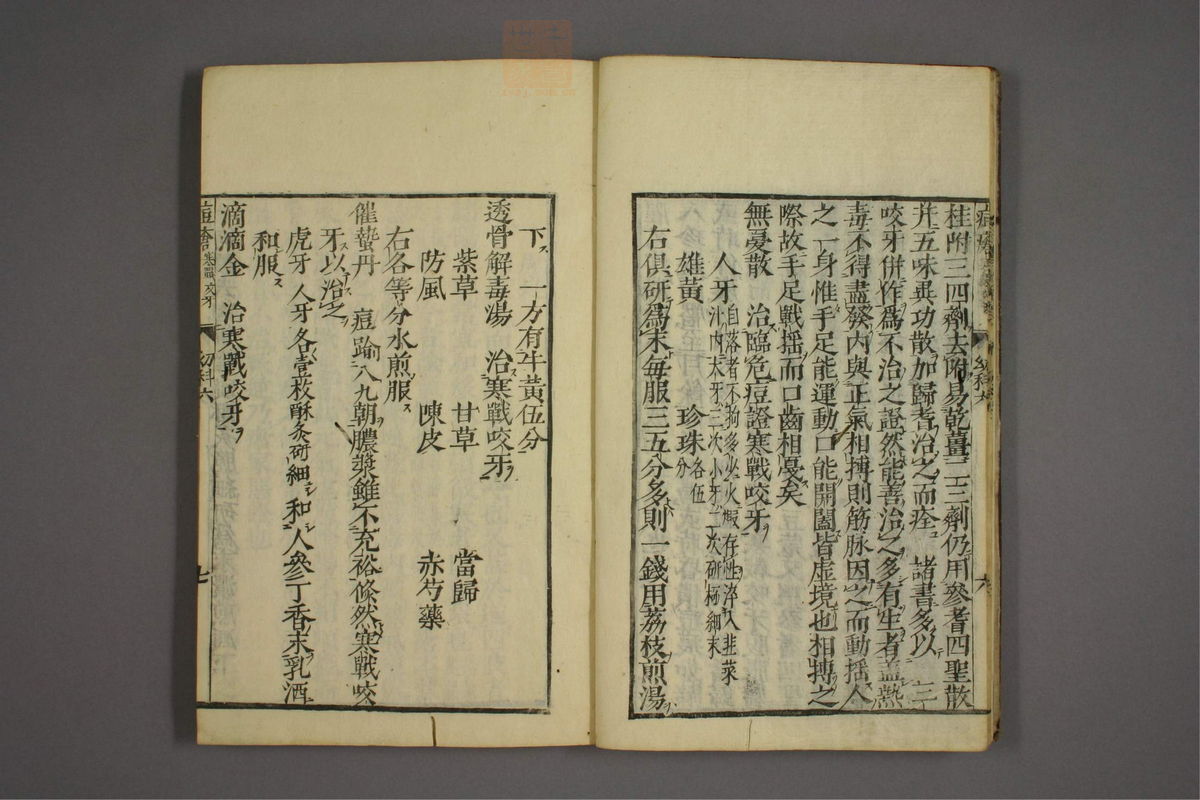 桂附三四劑去附易乾薑二三劑仍用參耆四聖散
幷五味異功散加歸耆治之而痊 諸書多以 二三
咬牙併作爲不治之證然能善治之多有生者蓋熱
毒不得盡發內與正氣相搏則筋脉因之而動搖人
之一身惟手足能運動口能開闔皆虛境也相搏之
際故手足戰搖而口齒相戞矣
無憂散 治臨危痘證寒戰咬牙
人牙 自落者不拘多少火煆存性淬入韭菜
汁內末牙三次小牙二次研極細末
雄黃 珍珠 各伍分
右俱研爲末每服三五分多則一錢用荔枝煎湯
幼科六
六
下 一方有牛黃伍分
透骨解毒湯 治寒戰咬牙
紫草 甘草 當歸
防風 陳皮 赤芍藥
右各等分水煎服
催蟄丹 痘踰八九朝膿漿雖不充裕倏然寒戰咬
牙以治之
虎牙 人牙各壹枚酥炙研細 和人參丁香末乳酒
和服
滴滴金 治寒戰咬牙
痘瘡 寒戰咬牙 幼科六 七